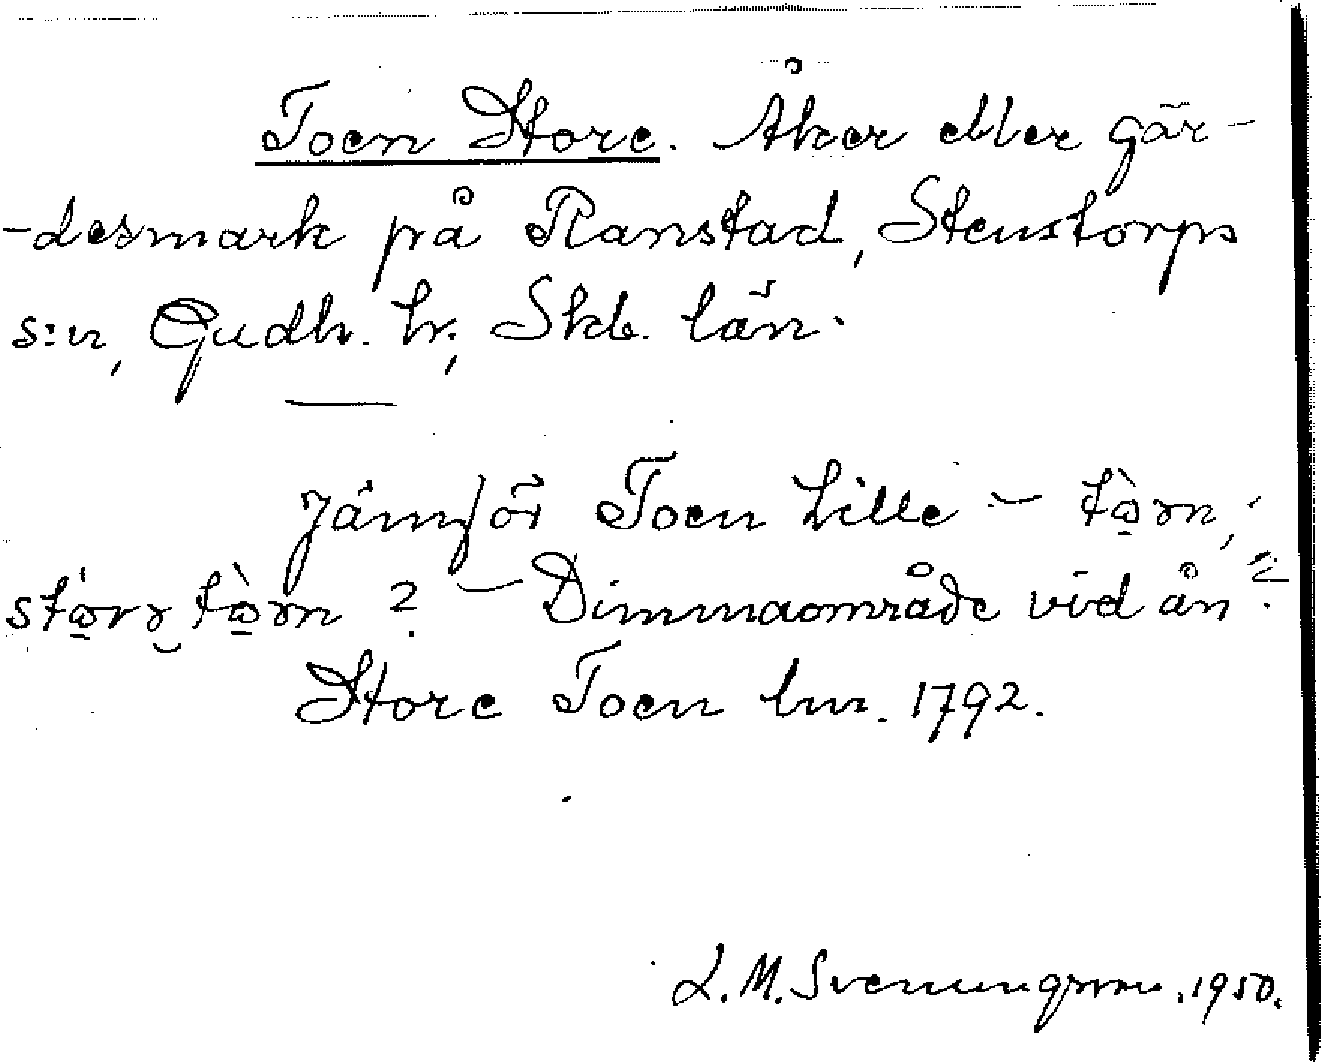 Toen Store. Åker eller gär-
-desmark på Ranstad, Stenstorps
s:n, Gudh. hr, Skb. län.
Jämför Toen Lille –
? – Dimmaområde vid ån.
Store Toen lm. 1792.
L. M. Svenungsson. 1950.